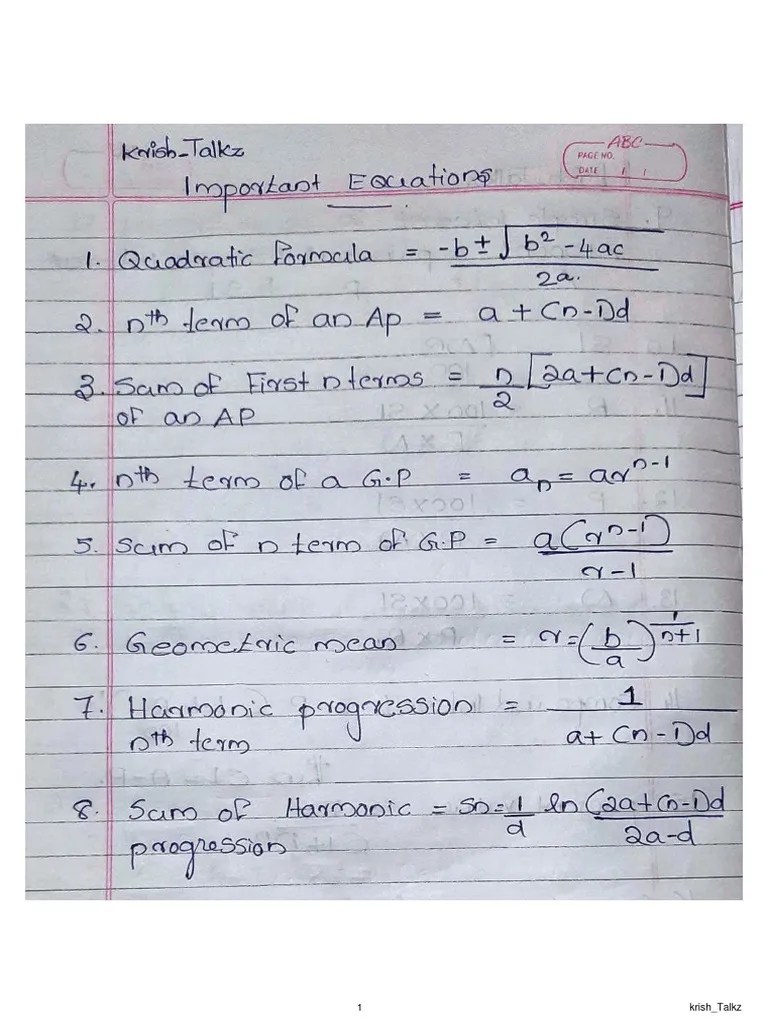 Krish-Talkz
ABC
PAGE NO.
DATE / /
Important Equations
1. Quadratic Formula = -b ± √(b² - 4ac) / 2a.
2. nth term of an Ap = a + (n-1)d
3. Sum of First n terms = n/2 [2a+(n-1)d]
of an AP
4. nth term of a G.P = aₙ = arⁿ⁻¹
5. Sum of n term of G.P = a(rⁿ-1) / r-1
6. Geometric mean = r = (b/a)^(1/n+1)
7. Harmonic progression = 1 / a+ (n-1)d
nth term
8. Sum of Harmonic = Sn = 1/d ln (2a+(n-1)d / 2a-d
progression
1
krish_Talkz